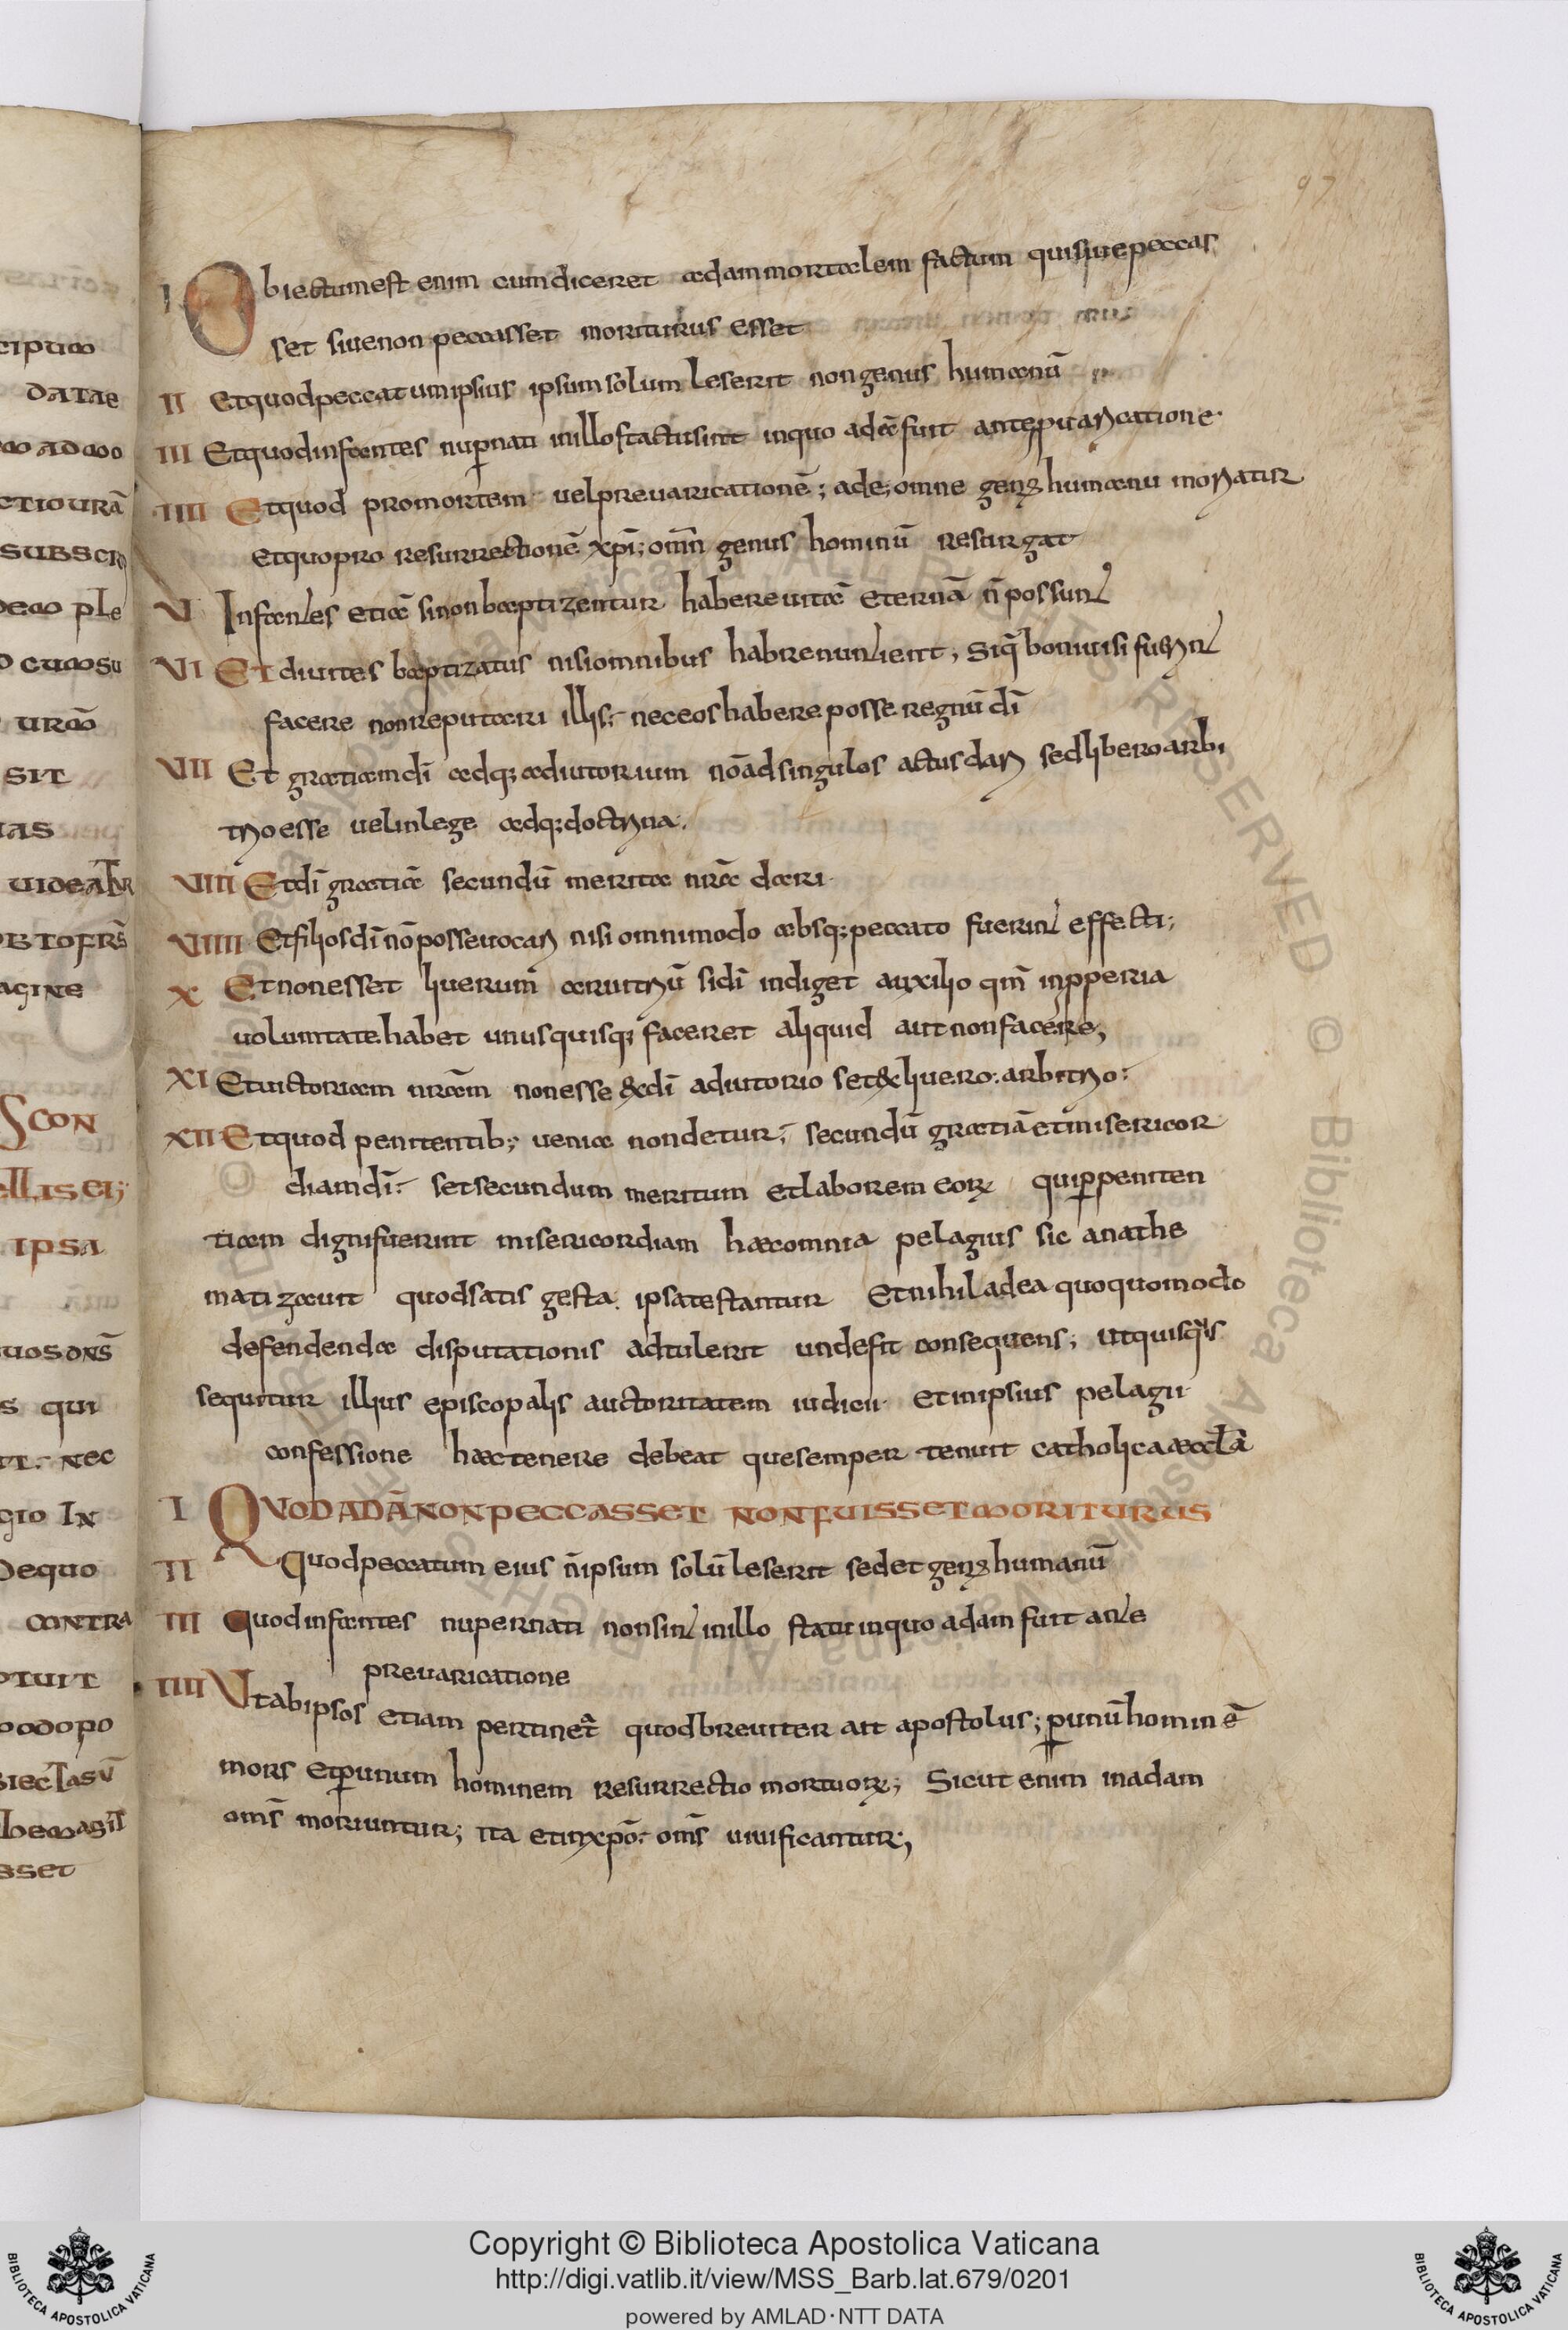 97
I Obiectum est enim cum diceret adam mortalem factum qui siue peccas
set siue non peccasset moriturus esset
II Et quod peccatum ipsius ipsum solum leserit non genus humanū
III Et quod infantes nuꝑ nati in illo stactu sint in quo adā fuit ante
IIII Et quod pro mortem uel preuaricationē; ade; omne humanu moriatur
et quo pro resurrectionē xpī; omn̄ genus hominū resurgat
V Infantes etiā si non baptizentur habere uitā eternā n̄ possunt
VI Et diuites baptizatus nisi omnibus habrenuntient, siq̄ boni uisi fuerint
facere non reputari illis; nec eos habere posse regnū dī
VII Et gratiam dī adq; adiutorium nō ad singulos actus dari sed libero arbi
trio esse uel in lege adq; doctrina.
VIII Et dī gratiā secundū merita nr̄a dari
VIIII Et filios dī nō posse uocari nisi omnimodo absq; peccato fuerint effecti;
X Et non esset liuerum aruitriū si dī indiget auxilio qm̄ in ꝓperia
uoluntate habet unusquisq; faceret aliquid aut non facere;
XI Et uictoriam nr̄am non esse ex dī adiutorio set ex liuero. arbitrio:
XII Et quod penitentib; uenia non detur; secundū gratiā et misericor
diam dī. set secundum meritum et laborem eoꝝ qui ꝑ peniten
tiam digni fuerint misericordiam hæc omnia pelagius sic anathe
matizauit quod satis gesta ipsa testantur Et nihil ad ea quoquomodo
defendenda disputationis adtulerit unde fit consequens; ut quisq̄s
sequitur illius episcopalis auctoritatem iudicii et in ipsius pelagii
confessione hæc tenere debeat que semper tenuit catholica
I QUOD ADĀ NON PECCASSET NON FUISSET MORITURUS
II Quod peccatum eius n̄ ipsum solū leserit sed et humanū
III Quod infantes nuper nati non sint in illo statu in quo adam fuit ante
preuaricatione
IIII Ut ab ipsos etiam pertineat quod breuiter ait apostolus; ꝑ unū hominē
mors et ꝑ unum hominem resurrectio mortuoꝝ; Sicut enim in adam
oms̄ moriuntur; ita et in xpō: oms̄ uiuificantur;
DATAE
SIT
UIDEATUR
AGINE
SCON
IPSA
qui
nec
GIO IN
DEQUO
CONTRA
Copyright © Biblioteca Apostolica Vaticana
http://digi.vatlib.it/view/MSS_Barb.lat.679/0201
powered by AMLAD·NTT DATA
BIBLIOTECA APOSTOLICA VATICANA
BIBLIOTECA APOSTOLICA VATICANA